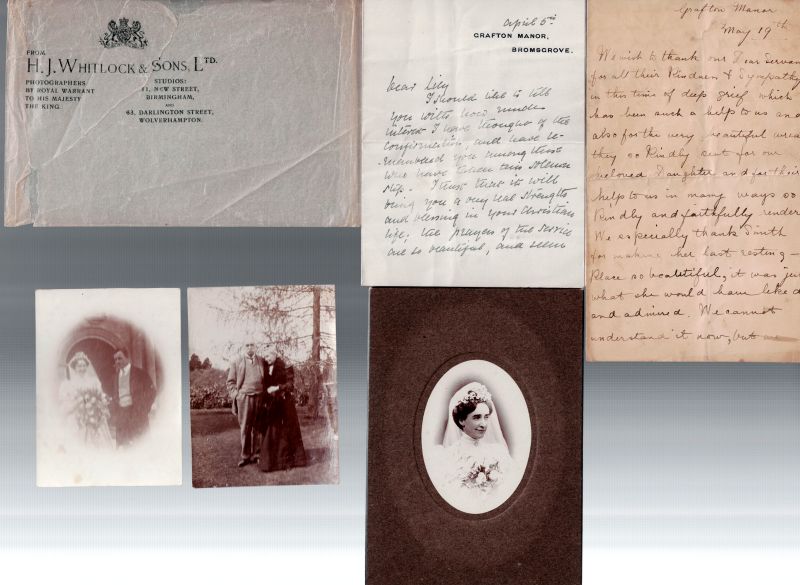 FROM
H. J. WHITLOCK & SONS, LTD.
PHOTOGRAPHERS
BY ROYAL WARRANT
TO HIS MAJESTY
THE KING.
STUDIOS:
11, NEW STREET,
BIRMINGHAM,
AND
63, DARLINGTON STREET,
WOLVERHAMPTON.
April 5th
GRAFTON MANOR,
BROMSGROVE.
Dear Lily
I should like to tell
you with how much
interest I have thought of the
confirmation, and have re-
membered you among those
who have taken this solemn
step. I trust that it will
bring you a very real strength
and blessing in your Christian
life; the prayers of the Service
are so beautiful, and seem
Grafton Manor
May 19th
We wish to thank our dear Servants
for all their Kindness & Sympathy
in this time of deep grief, which
has been such a help to us and
also for the very beautiful wreath
they so Kindly sent for our
beloved Daughter and for their
help to us in many ways so
Kindly and faithfully rendered
We especially thank Smith
for making her last resting-
Place so beautiful, it was just
what she would have liked
and admired. We cannot
understand it now, but